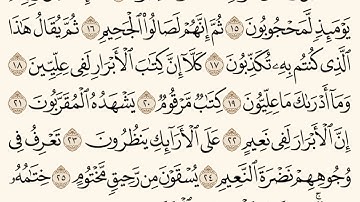 يَوْمَئِذٍ لَّمَحْجُوبُونَ ١٥ ثُمَّ إِنَّهُمْ لَصَالُوا۟ ٱلْجَحِيمِ ١٦ ثُمَّ يُقَالُ هَٰذَا
ٱلَّذِى كُنتُم بِهِۦ تُكَذِّبُونَ ١٧ كَلَّآ إِنَّ كِتَٰبَ ٱلْأَبْرَارِ لَفِى عِلِّيِّينَ ١٨
وَمَآ أَدْرَىٰكَ مَا عِلِّيُّونَ ١٩ كِتَٰبٌ مَّرْقُومٌ ٢٠ يَشْهَدُهُ ٱلْمُقَرَّبُونَ ٢١
إِنَّ ٱلْأَبْرَارَ لَفِى نَعِيمٍ ٢٢ عَلَى ٱلْأَرَآئِكِ يَنظُرُونَ ٢٣ تَعْرِفُ فِى
وُجُوهِهِمْ نَضْرَةَ ٱلنَّعِيمِ ٢٤ يُسْقَوْنَ مِن رَّحِيقٍ مَّخْتُومٍ ٢٥ خِتَٰمُهُۥ